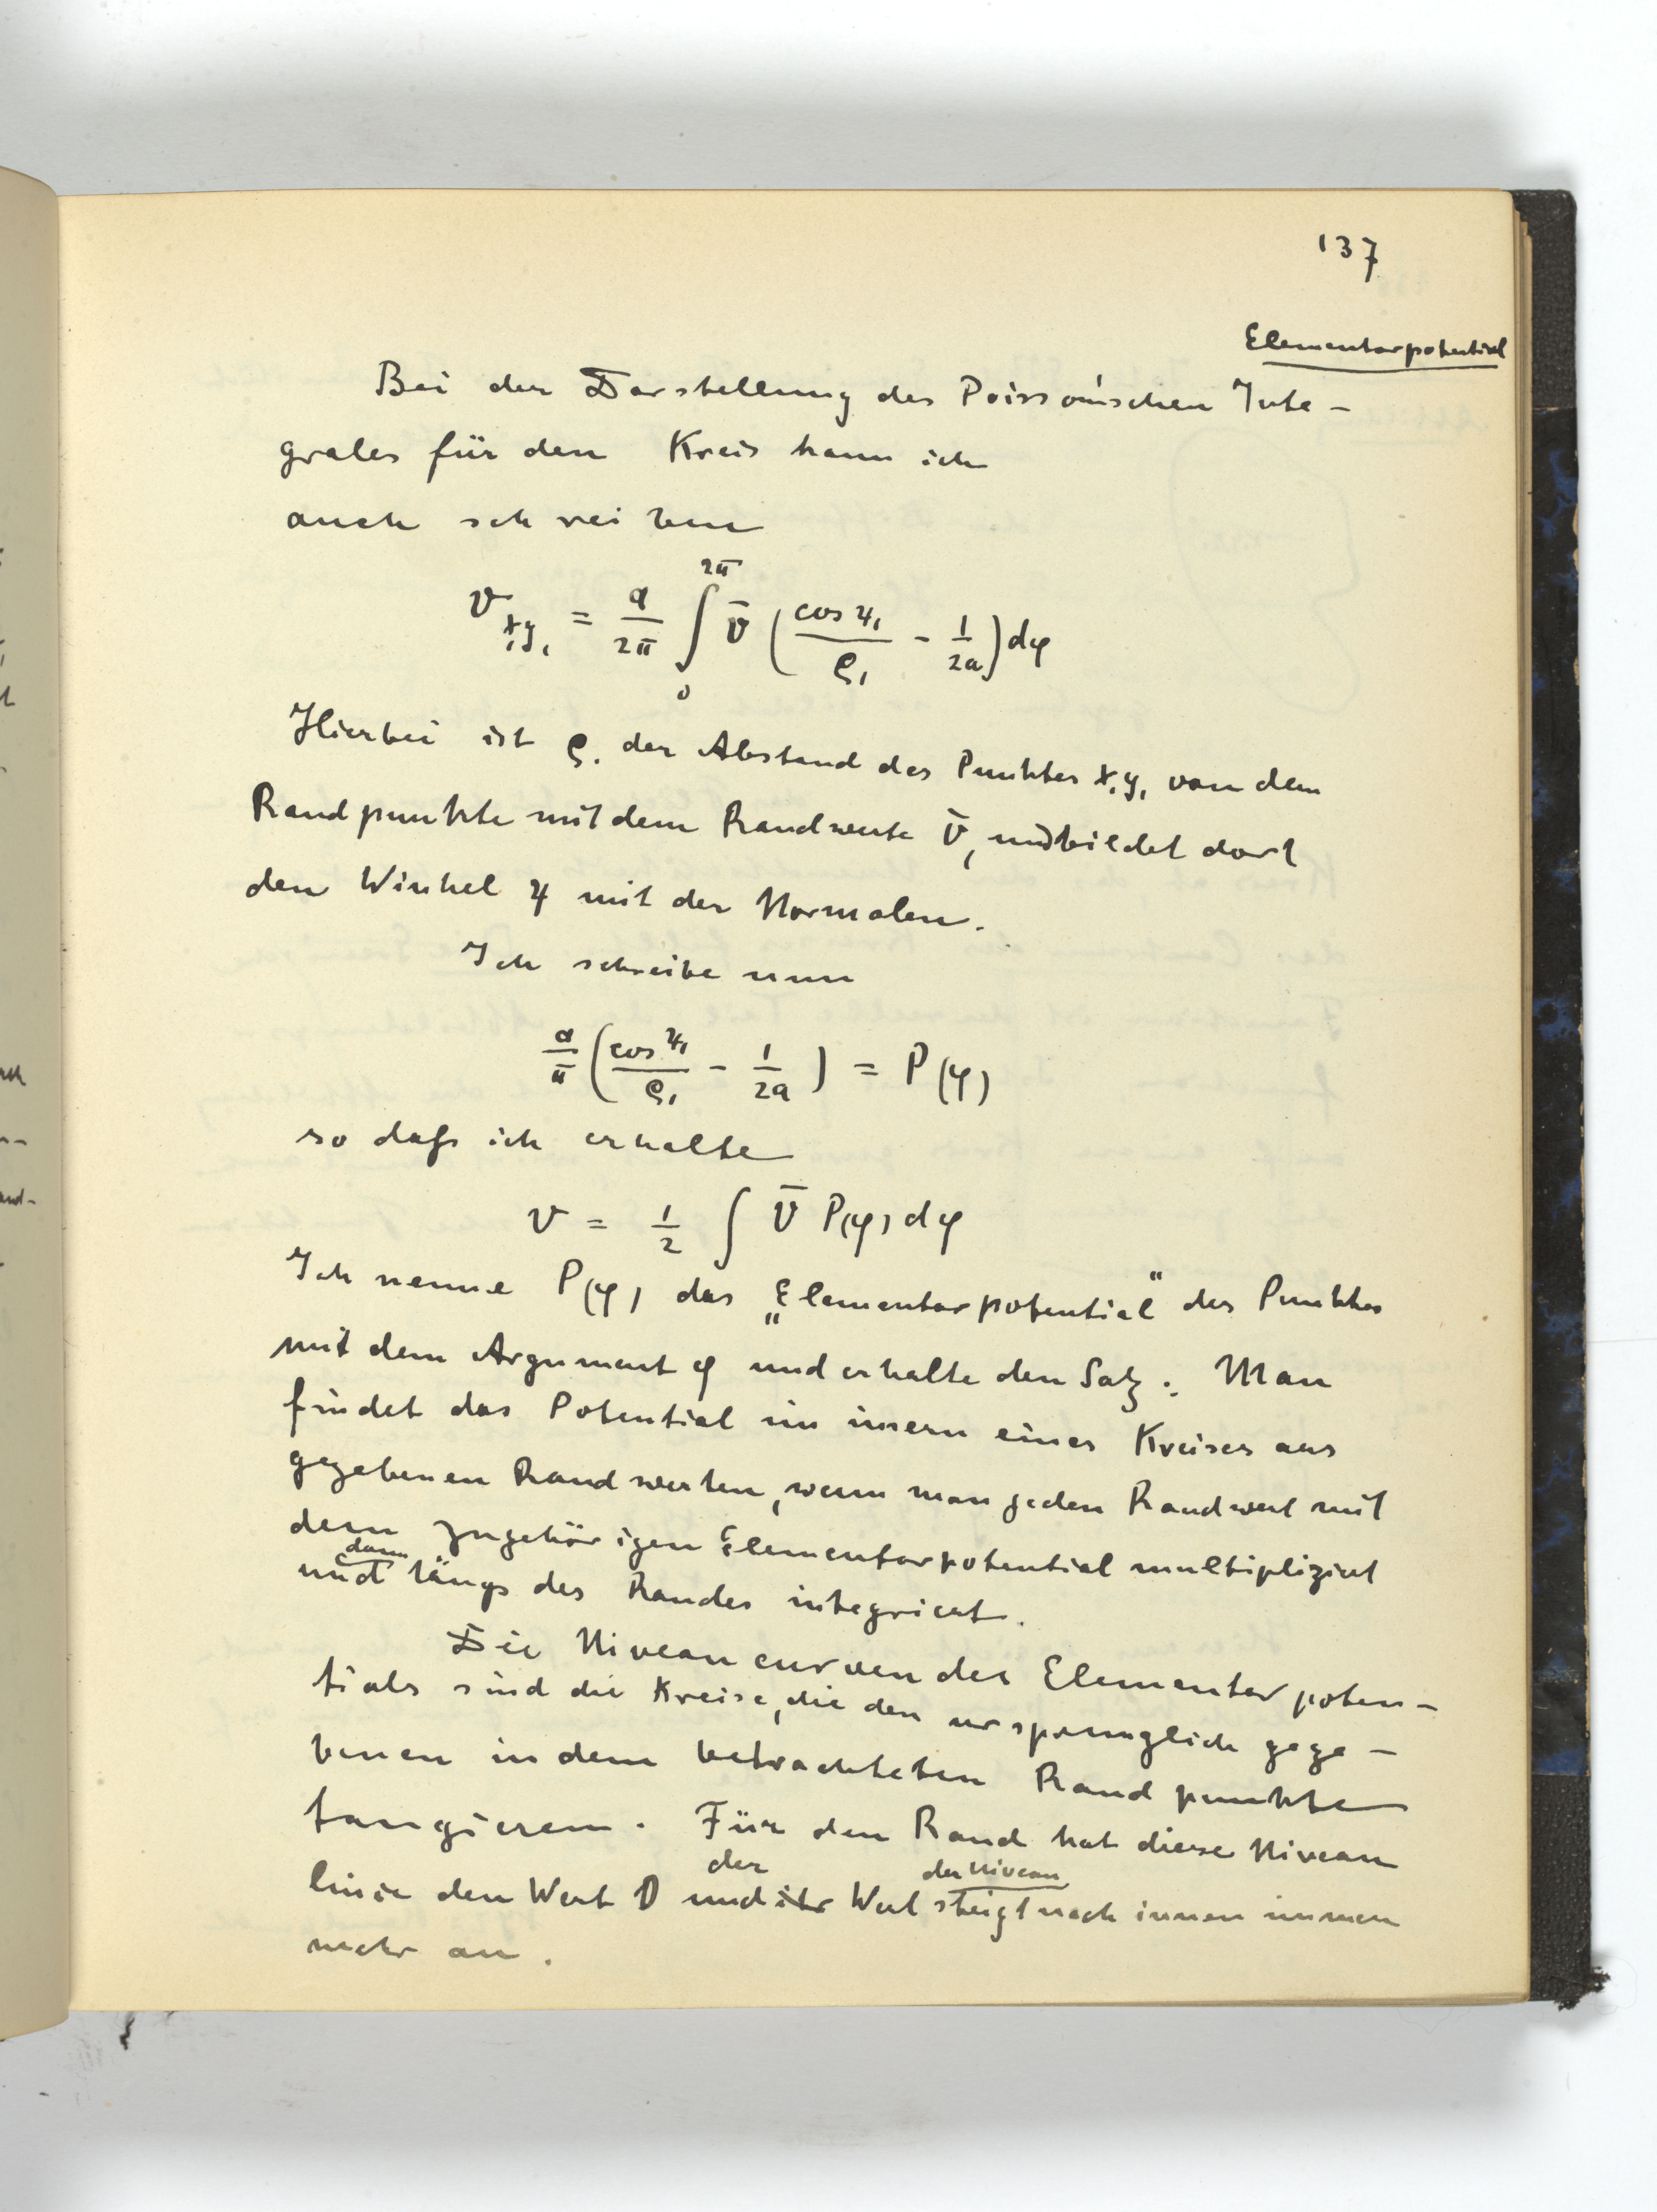 137
Elementarpotential
Bei der Darstellung des Poisson'schen Inte-
grales für den Kreis kann ich
auch schreiben
v_{x₁y₁} = a/2π ∫₀^{2π} v̄ (cos ψ₁/ρ₁ - 1/2a) dφ
Hierbei ist ρ₁ der Abstand des Punktes x₁y₁ von dem
Randpunkte mit dem Randwerte v̄, und bildet dort
den Winkel ψ mit der Normalen.
Ich schreibe nun
a/π (cos ψ₁/ρ₁ - 1/2a) = P(φ)
so daß ich erhalte
v = 1/2 ∫ v̄ P(φ) dφ
Ich nenne P(φ) das „Elementarpotential“ des Punktes
mit dem Argument φ und erhalte den Satz: Man
findet das Potential im innern eines Kreises aus
gegebenen Randwerten, wenn man jeden Randwert mit
dem zugehörigen Elementarpotential multipliziert
und dann längs des Randes integriert.
Die Niveaucurven des Elementarpoten-
tials sind die Kreise, die den ursprünglich gege-
benen in dem betrachteten Randpunkte
tangieren. Für den Rand hat diese Niveau
linie den Wert 0 und ihr der Wert der Niveau steigt nach innen immer
mehr an.